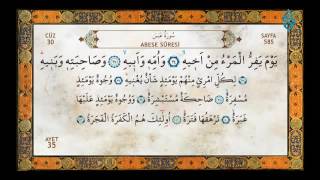 سُورَةُ عَبَسَ
CÜZ
30
ABESE SÛRESİ
SAYFA
585
يَوْمَ يَفِرُّ الْمَرْءُ مِنْ اَخ۪يهِ وَاُمِّه۪ وَاَب۪يهِ وَصَاحِبَتِه۪ وَبَن۪يهِ
لِكُلِّ امْرِئٍ مِنْهُمْ يَوْمَئِذٍ شَأْنٌ يُغْن۪يهِ وُجُوهٌ يَوْمَئِذٍ
مُسْفِرَةٌ ضَاحِكَةٌ مُسْتَبْشِرَةٌ وَوُجُوهٌ يَوْمَئِذٍ عَلَيْهَا
غَبَرَةٌ تَرْهَقُهَا قَتَرَةٌ اُو۬لٰٓئِكَ هُمُ الْكَفَرَةُ الْفَجَرَةُ
AYET
35